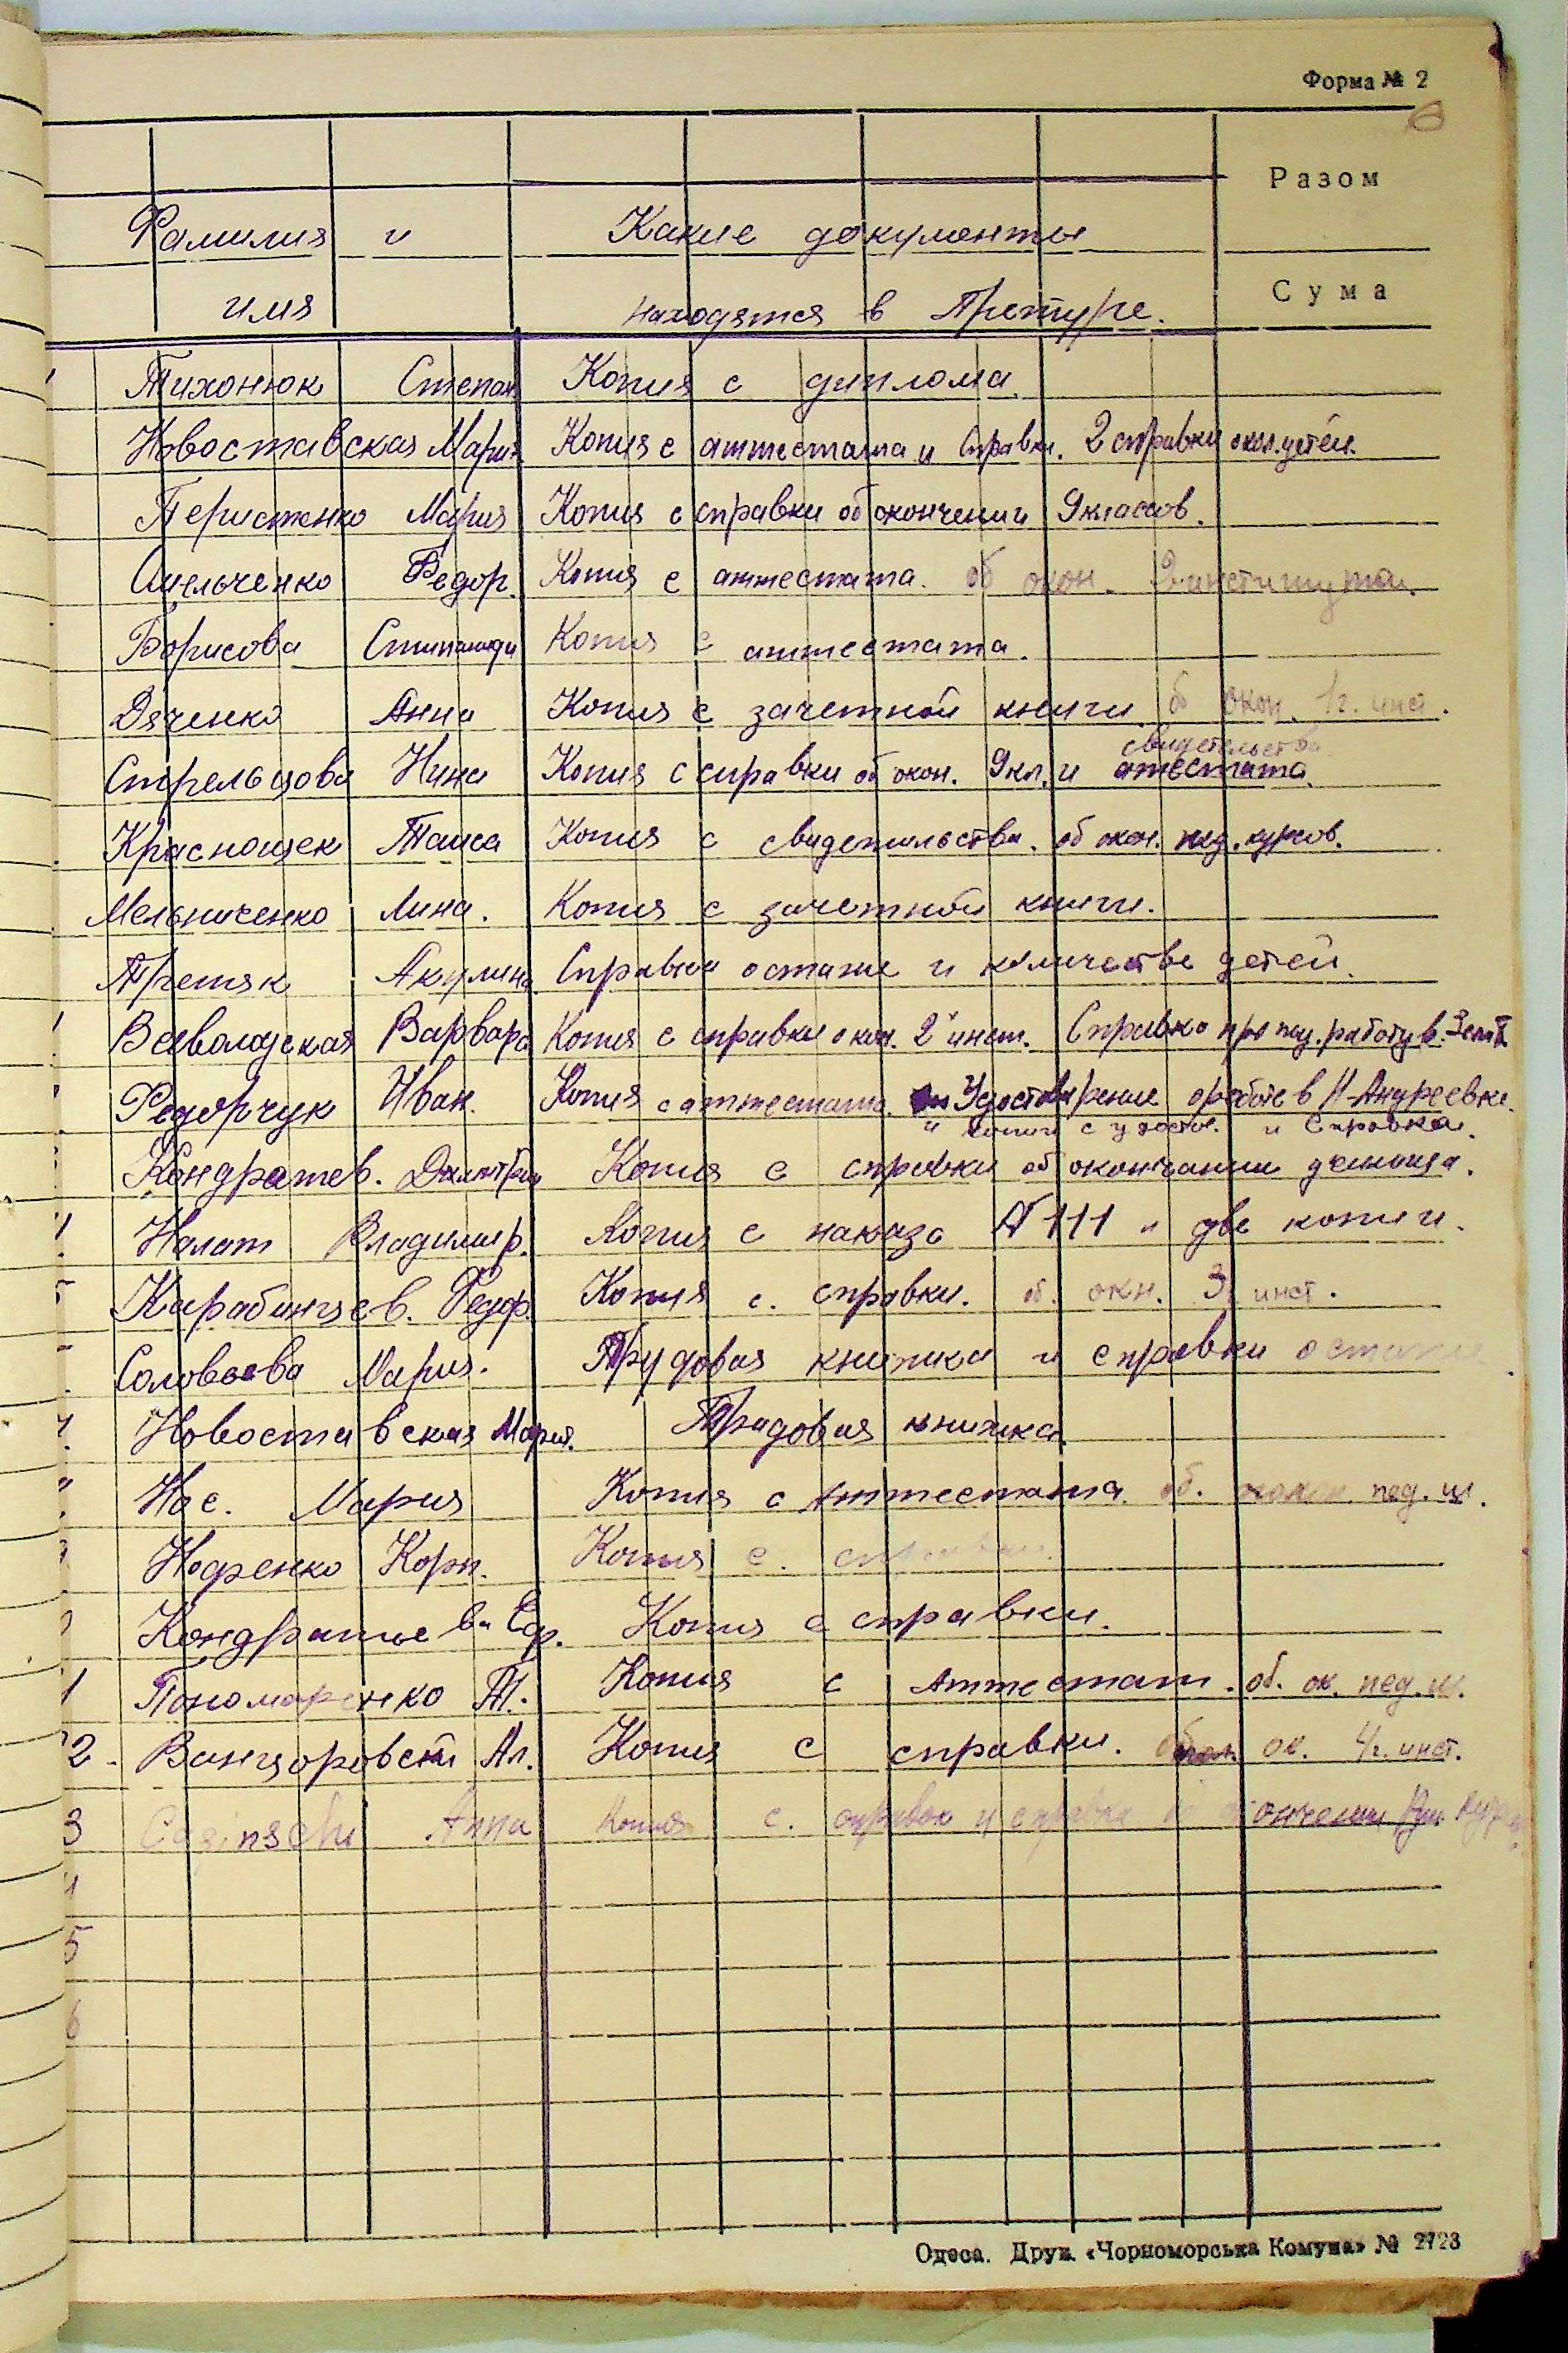 Форма № 2
6
Разом
Фамилия и Какие документы
имя находятся в Претуре.
Сума
Тихонюк Степан Копия с диплома.
Новоставская Мария Копия с аттестата и Справки. 2 справки о кол. детей.
Перистенко Мария Копия с справки об окончении 9 классов.
Омельченко Федор. Копия с аттестата. об окон.
Борисова Копия с аттестата.
Дяченко Анна Копия с зачетной книги об окон. 1 г. инст.
свидетельства
Стрельцова Нина Копия с справки об окон. 9 кл. и атестата.
Краснощек Таиса Копия с свидетельства. об окон. пед. курсов.
Мельниченко Лина. Копия с зачетной книги.
Третяк Акулина Справки о стаже и количестве детей.
Всеволодская Варвара Копия с справки о кон. 2 инст. Справка про пед. работу в.
Федорчук Иван. Копия с аттестата. Удостоверение о работе в Н-Андреевке.
и копии с удостов. и Справка.
Кондратев. Дмитрий Копия с справки об окончании
Налат Владимир. Копия с наказа № 111 и две копии.
Карабинцев. Федор. Копия с. справки. об. окн. 3 инст.
Соловьева Мария. Трудовая книжка и справки о стаже
Новоставская Мария. Традовая книжка
Нос. Мария Копия с Аттестата. об. пед.
Корн. Копия с. справки.
Кондратьева Ефр. Копия с справки.
1 Пономаренко Т. Копия с Аттестат. об. ок. пед. ш.
2 - Ал. Копия с справки. ок. 4 г. инст.
3 Anna Копия с. справок и справка окончении
4
5
6
Одеса. Друк. «Чорноморська Комуна» № 2723